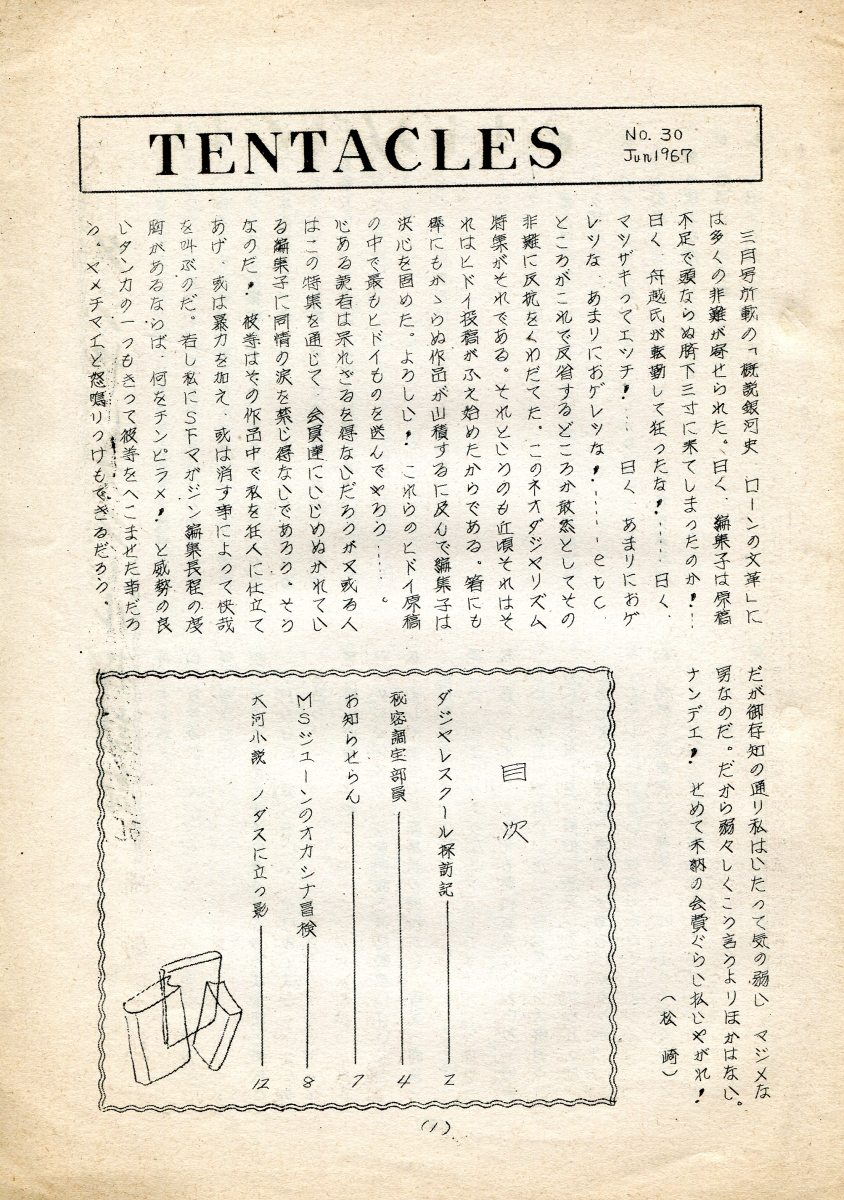 TENTACLES
No. 30
Jun 1967
三月号所載の「概説銀河史 ローンの文革」に
は多くの非難が寄せられた。曰く、編集子は原稿
不足で頭ならぬ臍下三寸に来てしまったのか!…
曰く、舟越氏が転勤して狂ったな!…… 曰く、
マツザキってエッチ!…… 曰く、あまりにおゲ
レツな、あまりにおゲレツな!……etc
ところがこれで反省するどころか敢然としてその
非難に反抗をくわだてた。このネオダジャリズム
特集がそれである。それというのも近頃それはそ
れはヒドイ投稿がふえ始めたからである。箸にも
棒にもかゝらぬ作品が山積するに及んで編集子は
決心を固めた。よろしい! これらのヒドイ原稿
の中で最もヒドイものを送んでやろう……。
心ある読者は呆れざるを得ないだろうが又或る人
はこの特集を通じて、会員達にいじめぬかれてい
る編集子に同情の涙を禁じ得ないであろう。そう
なのだ! 彼等はその作品中で私を狂人に仕立て
あげ、或は暴力を加え、或は消す事によって快哉
を叫ぶのだ。若し私にSFマガジン編集長程の度
胸があるならば、何をチンピラメ! と威勢の良
いタンカの一つもきって彼等をへこませた事だろ
う。ヤメチマエと怒鳴りつけもできるだろう。
だが御存知の通り私はいたって気の弱い マジメな
男なのだ。だから弱々しくこう言うよりほかはない。
ナンデエ! せめて未納の会費ぐらい払いやがれ!
(松 崎)
目 次
ダジャレスクール探訪記 2
秘密調室部員 4
お知らせらん 7
MSジェーンのオカシナ冒検 8
大河小説 ノダスに立つ影 12
(1)